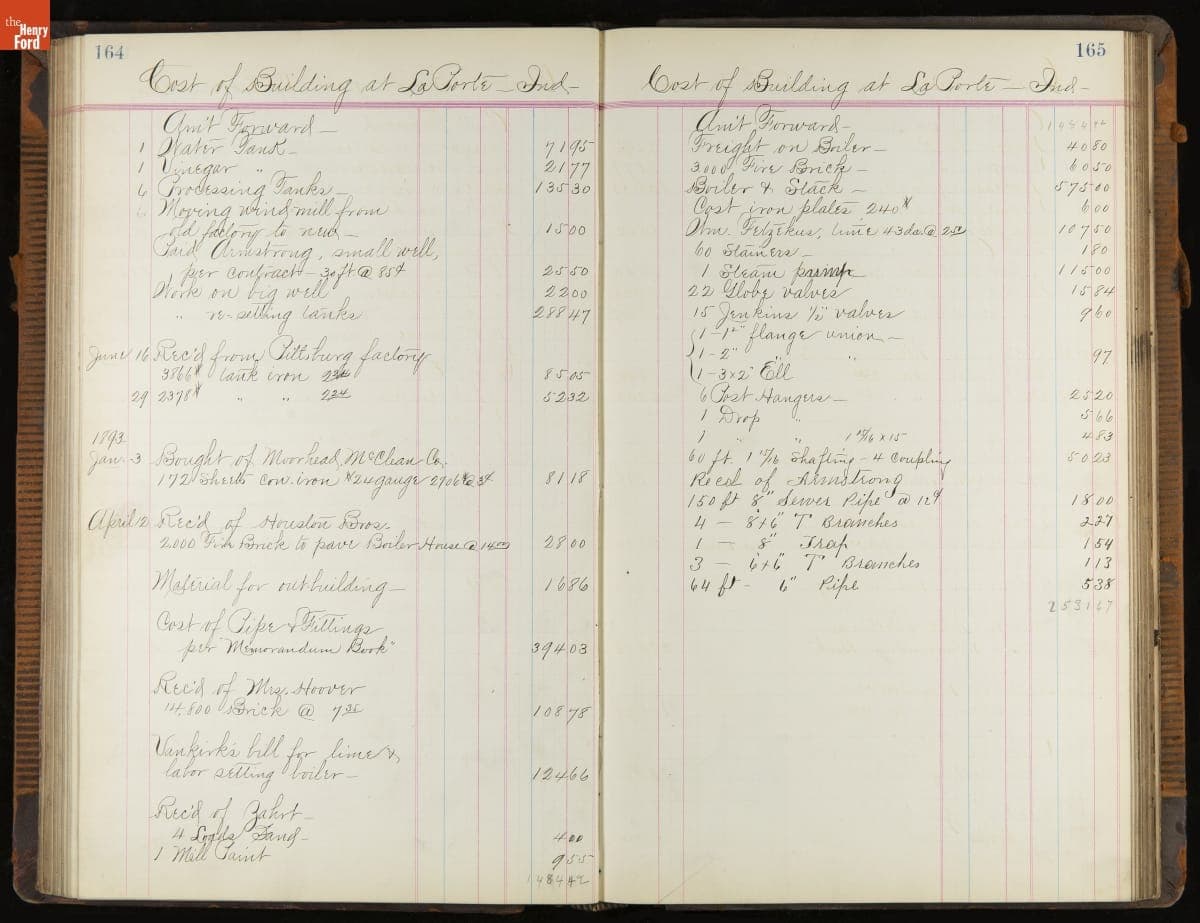 the
Henry
Ford
164
Cost of Building at La Porte – Ind –
Am't Forward –
1 Water Tank – 71 95
1 Vinegar " 21 77
6 Processing Tanks – 135 30
Moving wind mill from
old factory to new – 15 00
Paid Armstrong, small well,
per contract – 30 ft @ 85¢ 25 50
Work on big well 22 00
" re-setting tanks 288 47
June 16 Rec'd from Pittsburg factory
3866# tank iron 85 05
29 2378# " " 52 32
1893
Jan 3 Bought of Moorhead, McClean Co.
172 Sheets Cor. iron #24 gauge 2706# @ 3¢ 81 18
April 2 Rec'd of Houston Bros.
2000 Fire Brick to pave Boiler House @ 14.00 28 00
Material for outbuilding – 16 86
Cost of Pipe & Fittings
per "Memorandum Book" 394 03
Rec'd of Mrs. Hoover
14,800 Brick @ 7 35 108 78
Vankirk's bill for lime &
labor setting boiler – 124 66
Rec'd of Zahrt –
4 Loads Sand – 4 00
1 Mill Paint 9 55
1484 42
165
Cost of Building at La Porte – Ind –
Am't Forward – 1484 42
Freight on Boiler – 40 80
3000 Fire Brick – 60 50
Boiler & Stack – 575 00
Cost iron plates 240# 6 00
Wm. Felzekus, time 43 da @ 2 50 107 50
60 Stainers – 1 80
1 Steam pump 115 00
22 Globe valves 15 84
15 Jenkins ½" valves 9 60
1 – 1" flange union –
1 – 2" " " 97
1 – 3x2" Ell
6 Post Hangers – 25 20
1 Drop " 5 66
1 " " 1 15/16 x 15 4 83
60 ft 1 15/16 Shafting – 4 Coupling 50 23
Recd of Armstrong
150 ft 8" Sewer Pipe @ 12¢ 18 00
4 – 8x6" T Branches 2 27
1 – 8" Trap 1 54
3 – 6x6" T Branches 1 13
64 ft – 6" Pipe 5 38
2531 67